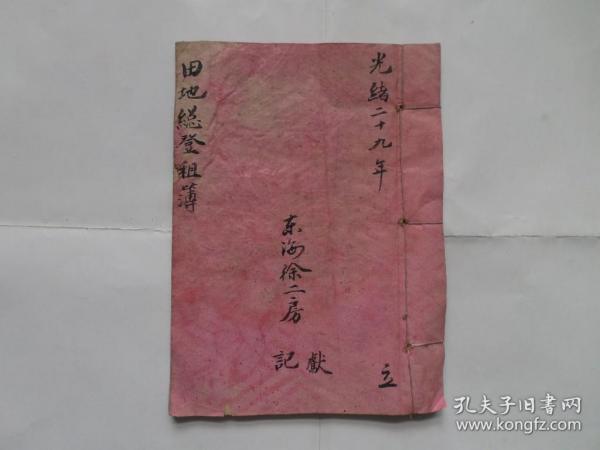 光緒二十九年 立
东海徐二房
獻記
田地總登租簿
孔夫子旧书网
www.kongfz.com